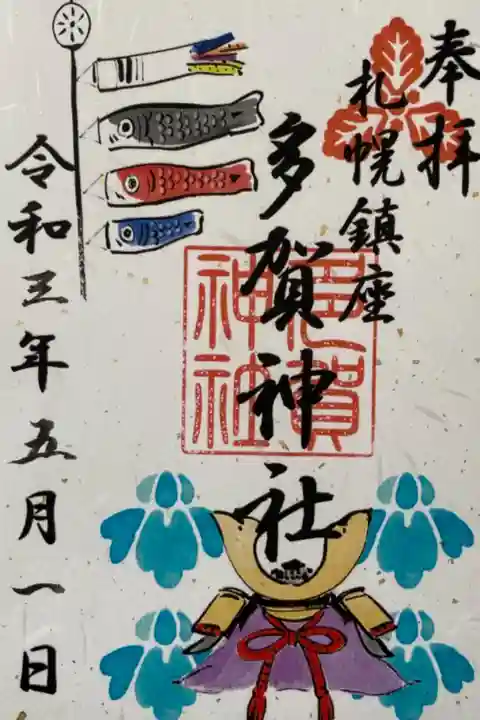 奉拝
札幌鎮座
多賀神社
多賀神社
令和三年五月一日